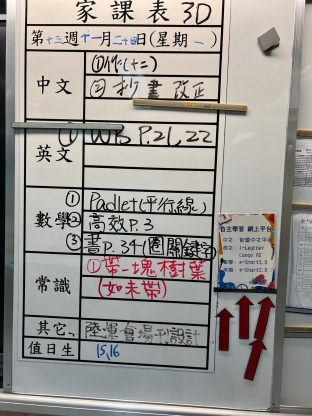 家課表 3D
第十三週十一月二十四日(星期一)
中文
①作(十二)
② 抄書 改正
英文
① WB P.21,22
數學
① Padlet(平行線)
② 高效P.3
③ 書P.34(圈關鍵字)
常識
①帶一塊樹葉
(如未帶)
其它
陸運會場刊設計
值日生
15,16
自主學習 網上平台